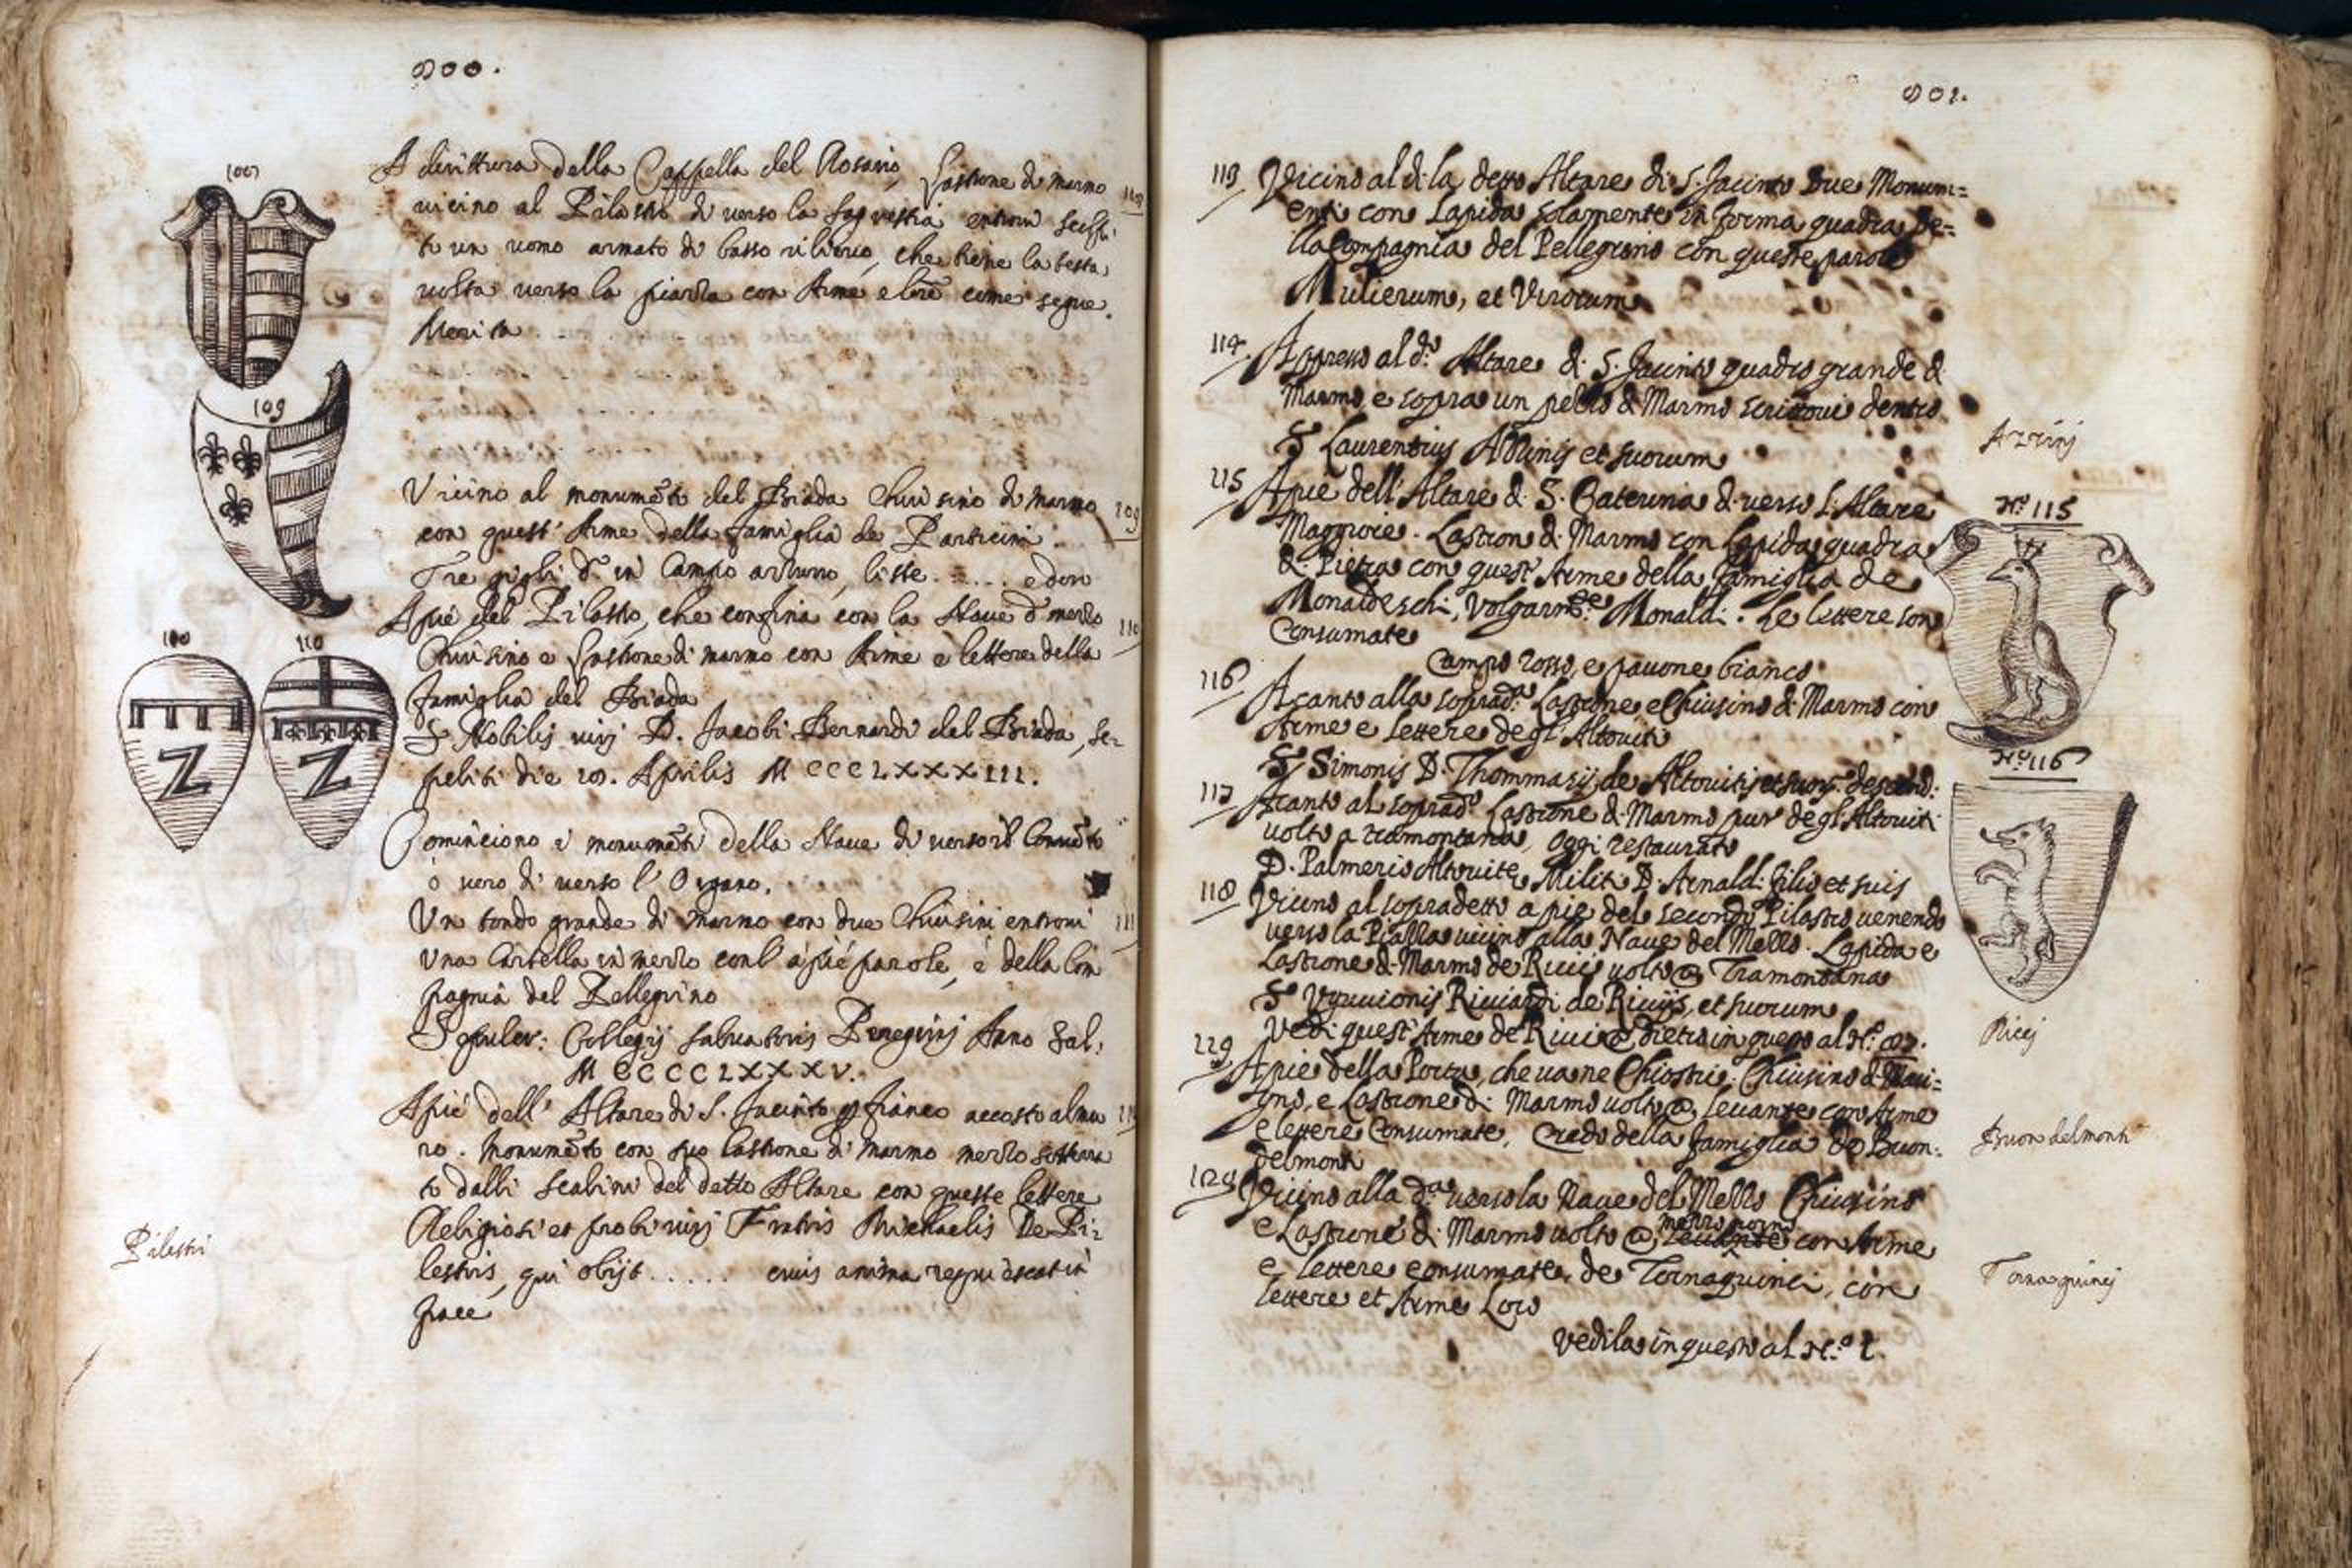 900.
A dirittura della Cappella del Rosario, Lastrone di marmo
vicino al Pilastro di verso la Sagrestia entrovi scolpi
to un uomo armato di basso rilievo, che tiene la testa
volta verso la piazza con Arme e lre come segue.
108
109
Vicino al monumẽto del Biada Chiusino di marmo
con quest' Arme della famiglia de
Tre gigli d' in Campo azzurro, liste ...... e d'oro
109
Apié del Pilastro, che confina con la Nave d' mezzo
Chiusino e Lastrone di marmo con Arme e lettere della
famiglia del Biada
S. Nobilis viri D. Jacobi Bernardi del Biada, se-
peliti die Aprilis M CCCLXXXIII.
110
110
110
Cominciono i monumẽti della Nave di verso il Convẽto
ò vero di verso l' Organo.
Un tondo grande di marmo con due Chiusini entrovi
una Cartella in mezzo con l' apié parole, è della Com
pagnia del Pellegrino
Sepulcr: Collegij Salvatoris Peregrini Anno Sal.
M CCCCLXXXV.
111
Apié dell' Altare di S. Jacinto p fianco accosto al mu
ro. Monumẽto con suo lastrone di marmo mezzo sotterra
to dalli scalini del detto Altare con queste lettere
Religiosi et probi viri Fratris Michaelis De Pi-
lestris, qui obijt ...... cuius anima requiescat in
pace
Pilestri
901.
113 Vicino al di là detto Altare di S. Jacinto Due Monum=
enti con Lapida solamente in forma quadra De=
lla Compagnia del Pellegrino con queste parole
Mulierum, et Virorum
114 Appresso al d.º Altare di S. Jacinto quadro grande di
Marmo e sopra un pezzo di Marmo scrittovi dentro
S. Laurentius Azzinij et suorum
Azzinj
115 Apiè dell' Altare di S. Caterina di verso l' Altare
Maggiore. Lastrone di Marmo con Lapida quadra
di Pietra con quest' Arme della famiglia de
Monaldeschi, Volgarm.te Monaldi. Le lettere sono
Consumate
Campo rosso, e pavone bianco
N.º 115
116 Acanto alla soprad.ª Lastrone, e Chiusino di Marmo con
Arme e lettere degl' Altoviti
S. Simonis D. Thommasij de Altovitis et suor. descend:
N.º 116
117 Acanto al soprad.º Lastrone di Marmo pur degl' Altoviti
volto a tramontana, oggi restaurato
D. Palmerio Altovite Militi D. Arnaldi filio et suis
118 Vicino al sopradetto a pie del secondo Pilastro venendo
verso la Piazza vicino alla Nave del Mezzo. Lapida e
Lastrone di Marmo de Ricci volto a Tramontana
S. Uguiccionis Ricciardi de Riccijs, et suorum
Vedi quest' Arme de Ricci a dietro in questo al N.º
Ricej
119 Apie della Porta, che va ne Chiostri. Chiusino di
e Lastrone di Marmo volto a levante con Arme
e lettere Consumate, Credo della famiglia de Buon-
delmonti
Buondelmonti
120 Vicino alla d.ª verso la Nave del Mezzo Chiusino
mezzo giorno
e Lastrone di Marmo volto a levante con Arme
e lettere consumate, de Tornaquinci, con
lettere et Arme Loro
Tornaquincj
Vedila in questo al N.º 2.